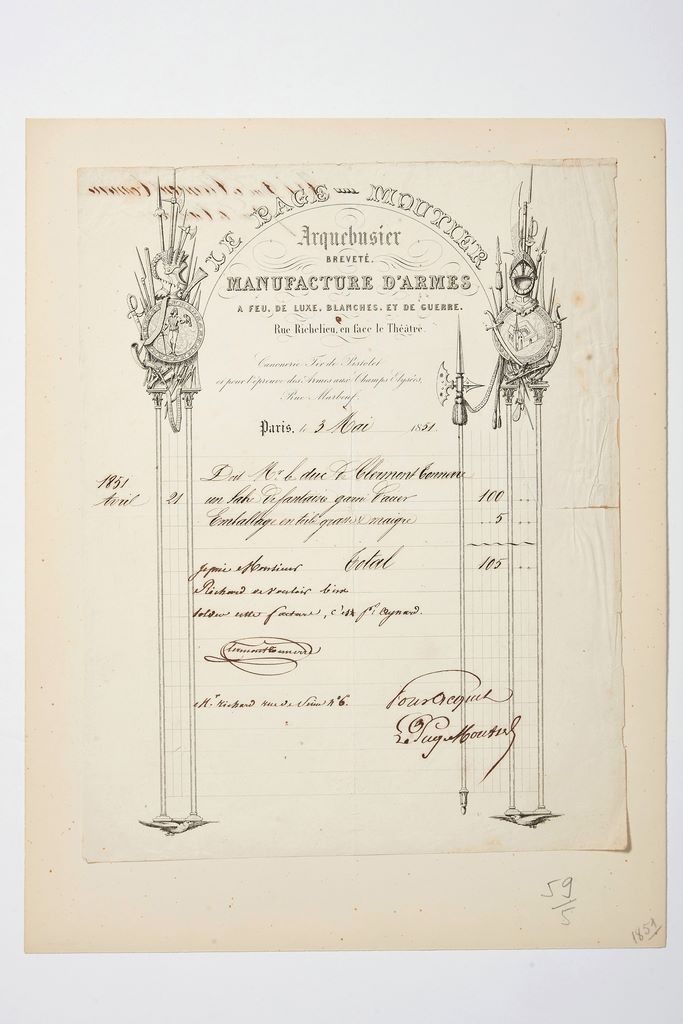 LE PAGE MOUTIER
Arquebusier
BREVETÉ.
MANUFACTURE D'ARMES
A FEU, DE LUXE, BLANCHES, ET DE GUERRE.
Rue Richelieu, en face le Théâtre.
Canonerie Tir de Pistolet
et pour l'épreuve des Armes aux Champs Elysées,
Rue Marbeuf.
Paris, le 3 Mai 1851.
Doit Mr. le duc de Clermont Tonnerre
1851
Avril 21 un Sabre de fantaisie garni d'acier 100 ..
Emballage en toile grasse & maigre 5 ..
Total 105 ..
je prie Monsieur
Richard de vouloir bien
solder cette facture,
Clermont Tonnerre
Mr. Richard rue de Seine n° 6.
Pour acquit
Le Page Moutier
59
5
1851